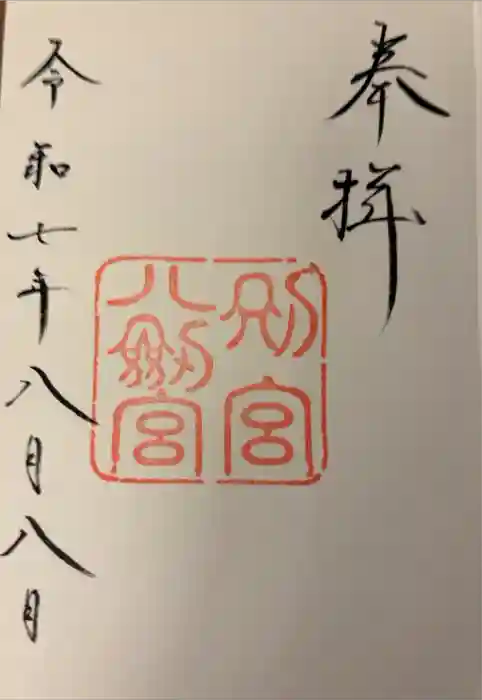 奉拝
別宮
八剣宮
令和七年八月八日